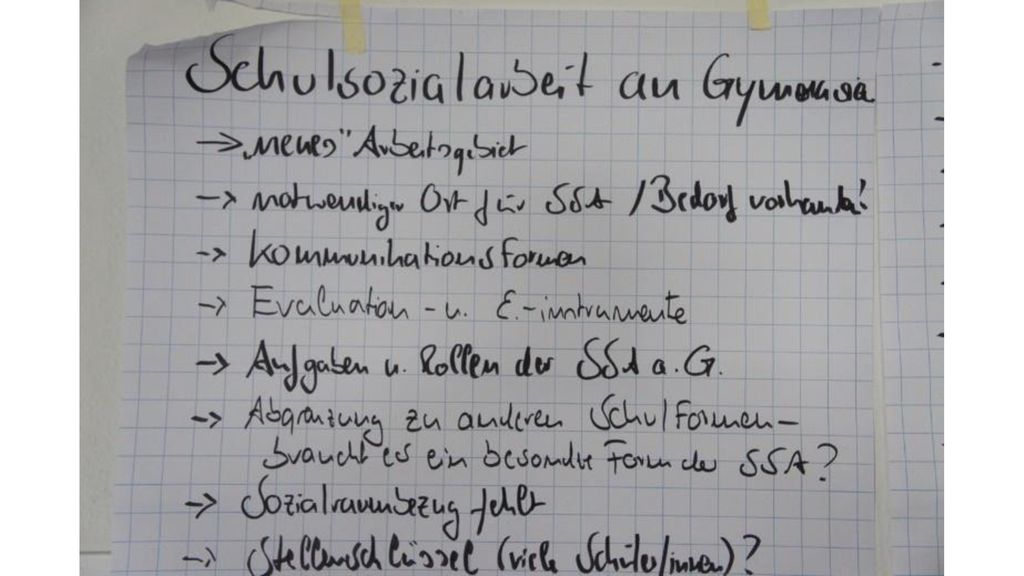 Schulsozialarbeit an Gymnasia
→ „neues" Arbeitsgebiet
-> notwendiger Ort für SSA / Bedarf vorhanden!
-> Kommunikationsformen
-> Evaluation - u. E.-instrumente
-> Aufgaben u. Rollen der SSA a. G.
-> Abgränzung zu anderen Schulformen -
braucht es ein besondre Form der SSA?
-> Sozialraumbezug fehlt
-> Stellenschlüssel (viele Schüler/innen)?